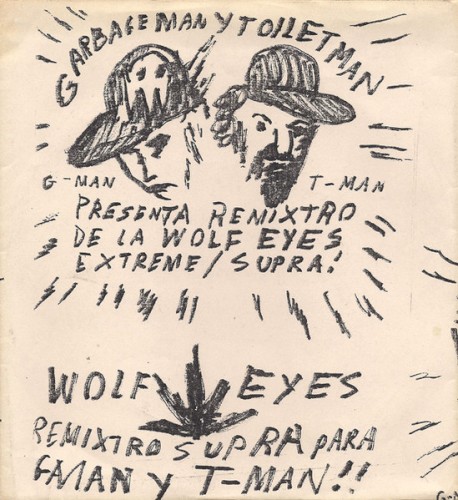 GARBAGE MAN Y TOILET MAN
G-MAN
T-MAN
PRESENTA REMIXTRO
DE LA WOLF EYES
EXTREME/SUPRA!
WOLF EYES
REMIXTRO SUPRA PARA
GMAN Y T-MAN!!